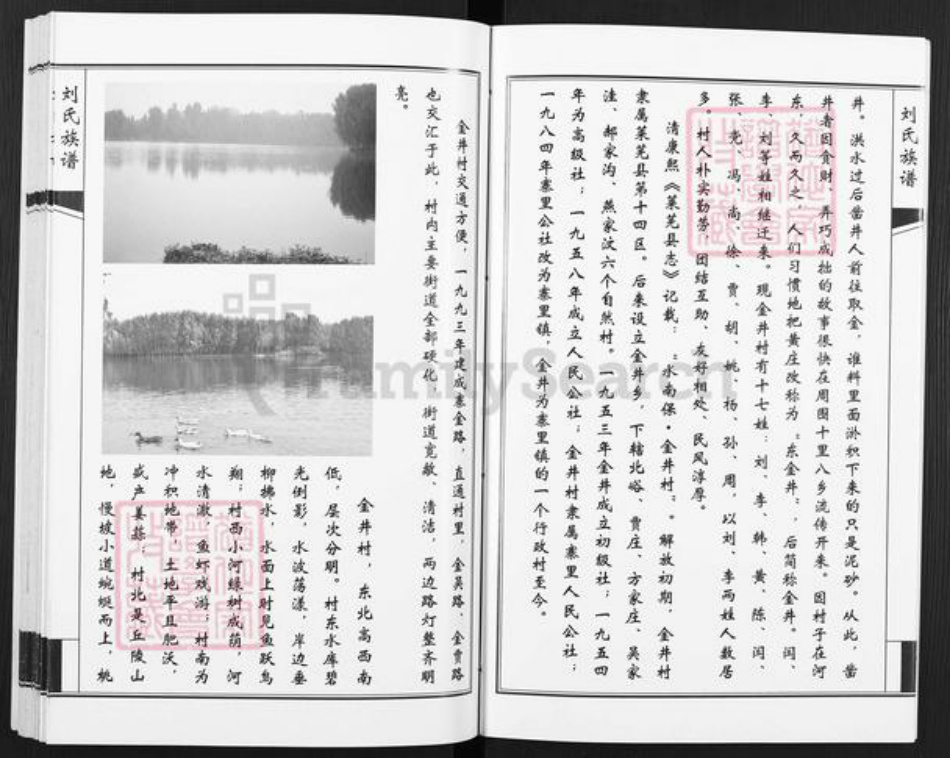 刘氏族谱
井。洪水过后凿井人前往取金，谁料里面淤积下来的只是泥砂。从此，凿
井者因贪财、弄巧成拙的故事很快在周围十里八乡流传开来。因村子在河
东，久而久之，人们习惯地把黄庄改称为“东金井”，后简称金井。闫、
李、刘等姓相继迁来。现金井村有十七姓：刘、李、韩、黄、陈、闫、
张、亓、冯、尚、徐、贾、胡、姚、杨、孙、周，以刘、李两姓人数居
多。村人朴实勤劳，团结互助、友好相处、民风淳厚。
清康熙《莱芜县志》记载：“水南保·金井村”。解放初期，金井村
隶属莱芜县第十四区。后来设立金井乡，下辖北峪、贾庄、方家庄、吴家
洼、郝家沟、燕家汶六个自然村。一九五三年金井成立初级社；一九五四
年为高级社；一九五八年成立人民公社；金井村隶属寨里人民公社；
一九八四年寨里公社改为寨里镇，金井为寨里镇的一个行政村至今。
金井村交通方便，一九九三年建成寨金路，直通村里，金吴路、金贾路
也交汇于此，村内主要街道全部硬化，街道宽敞、清洁，两边路灯整齐明
亮。
金井村，东北高西南
低，层次分明。村东水库碧
光倒影，水波荡漾，岸边垂
柳拂水，水面上时见鱼跃鸟
翔；村西小河绿树成荫，河
水清澈，鱼虾戏游；村南为
冲积地带，土地平且肥沃，
盛产姜蒜；村北是丘陵山
地，慢坡小道蜿蜒而上，桃
刘氏族谱
FamilySearch